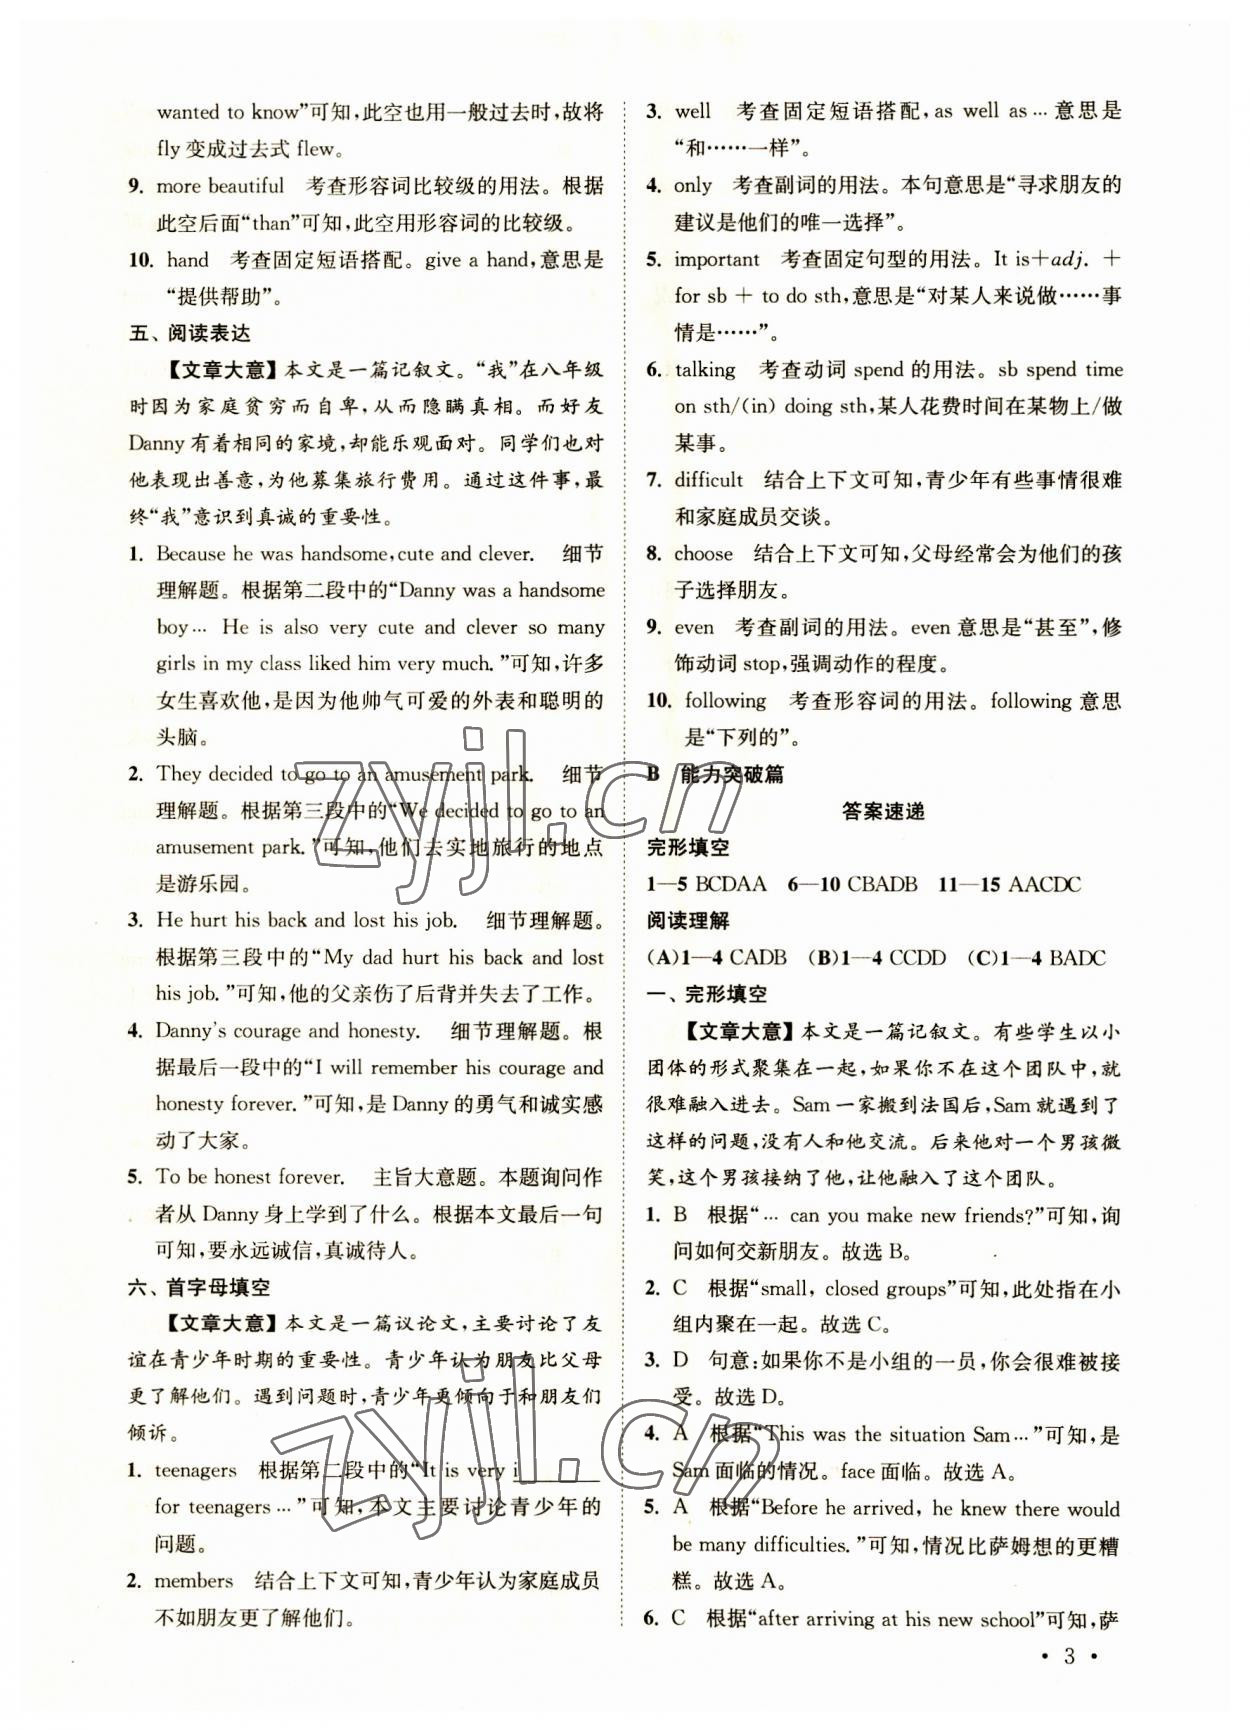 wanted to know”可知,此空也用一般过去时,故将
fly变成过去式 flew。
9. more beautiful 考查形容词比较级的用法。根据
此空后面“than”可知,此空用形容词的比较级。
10. hand 考查固定短语搭配。give a hand,意思是
“提供帮助”。
五、阅读表达
【文章大意】本文是一篇记叙文。“我”在八年级
时因为家庭贫穷而自卑,从而隐瞒真相。而好友
Danny有着相同的家境,却能乐观面对。同学们也对
他表现出善意,为他募集旅行费用。通过这件事,最
终“我”意识到真诚的重要性。
1. Because he was handsome,cute and clever. 细节
理解题。根据第二段中的“Danny was a handsome
boy… He is also very cute and clever so many
girls in my class liked him very much.”可知,许多
女生喜欢他,是因为他帅气可爱的外表和聪明的
头脑。
2. They decided to go to an amusement park. 细节
理解题。根据第三段中的“We decided to go to an
amusement park.”可知,他们去实地旅行的地点
是游乐园。
3. He hurt his back and lost his job. 细节理解题。
根据第三段中的“My dad hurt his back and lost
his job.”可知,他的父亲伤了后背并失去了工作。
4. Danny’s courage and honesty. 细节理解题。根
据最后一段中的“I will remember his courage and
honesty forever.”可知,是Danny的勇气和诚实感
动了大家。
5. To be honest forever. 主旨大意题。本题询问作
者从Danny身上学到了什么。根据本文最后一句
可知,要永远诚信,真诚待人。
六、首字母填空
【文章大意】本文是一篇议论文,主要讨论了友
谊在青少年时期的重要性。青少年认为朋友比父母
更了解他们。遇到问题时,青少年更倾向于和朋友们
倾诉。
1. teenagers 根据第二段中的“It is very i________
for teenagers…”可知,本文主要讨论青少年的
问题。
2. members 结合上下文可知,青少年认为家庭成员
不如朋友更了解他们。
3. well 考查固定短语搭配,as well as…意思是
“和……一样”。
4. only 考查副词的用法。本句意思是“寻求朋友的
建议是他们的唯一选择”。
5. important 考查固定句型的用法。It is+adj. +
for sb + to do sth,意思是“对某人来说做……事
情是……”。
6. talking 考查动词 spend 的用法。sb spend time
on sth/(in) doing sth,某人花费时间在某物上/做
某事。
7. difficult 结合上下文可知,青少年有些事情很难
和家庭成员交谈。
8. choose 结合上下文可知,父母经常会为他们的孩
子选择朋友。
9. even 考查副词的用法。even 意思是“甚至”,修
饰动词 stop,强调动作的程度。
10. following 考查形容词的用法。following 意思
是“下列的”。
B 能力突破篇
答案速递
完形填空
1—5 BCDAA 6—10 CBADB 11—15 AACDC
阅读理解
(A)1—4 CADB (B)1—4 CCDD (C)1—4 BADC
一、完形填空
【文章大意】本文是一篇记叙文。有些学生以小
团体的形式聚集在一起,如果你不在这个团队中,就
很难融入进去。Sam一家搬到法国后,Sam就遇到了
这样的问题,没有人和他交流。后来他对一个男孩微
笑,这个男孩接纳了他,让他融入了这个团队。
1. B 根据“… can you make new friends?”可知,询
问如何交新朋友。故选 B。
2. C 根据“small, closed groups”可知,此处指在小
组内聚在一起。故选 C。
3. D 句意:如果你不是小组的一员,你会很难被接
受。故选 D。
4. A 根据“This was the situation Sam…”可知,是
Sam 面临的情况。face 面临。故选 A。
5. A 根据“Before he arrived, he knew there would
be many difficulties.”可知,情况比萨姆想的更糟
糕。故选 A。
6. C 根据“after arriving at his new school”可知,萨
• 3 •
zyjl.cn
zyjl.cn